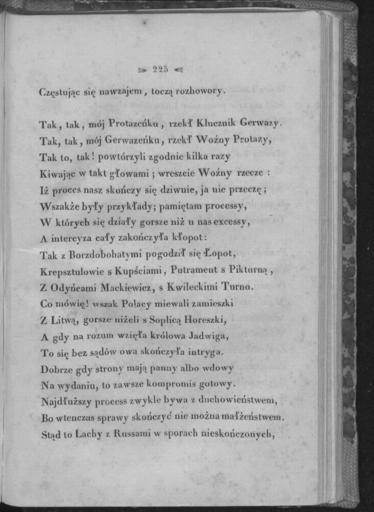 225
Częstując się nawzajem, toczą rozhowory.
Tak, tak, mój Protazeńku, rzekł Klucznik Gerwazy.
Tak, tak, mój Gerwazeńku, rzekł Woźny Protazy,
Tak to, tak! powtórzyli zgodnie kilka razy
Kiwając w takt głowami; wreszcie Woźny rzecze:
Iż proces nasz skończy się dziwnie, ja nie przeczę;
Wszakże były przykłady; pamiętam processy,
W których się działy gorsze niż u nas excessy,
A intercyza cały zakończyła kłopot:
Tak z Borzdobohatymi pogodził się Łopot,
Krepsztulowie s Kupściami, Putrament s Pikturną,
Z Odyńcami Mackiewicz, s Kwileckimi Turno.
Co mówię! wszak Polacy miewali zamieszki
Z Litwą, gorsze niżeli s Soplicą Horeszki,
A gdy na rozum wzięła królowa Jadwiga,
To się bez sądów owa skończyła intryga.
Dobrze gdy strony mają panny albo wdowy
Na wydaniu, to zawsze kompromis gotowy.
Najdłuższy process zwykle bywa z duchowieństwem,
Bo wtenczas sprawy skończyć nie można małżeństwem.
Stąd to Lachy z Russami w sporach nieskończonych,